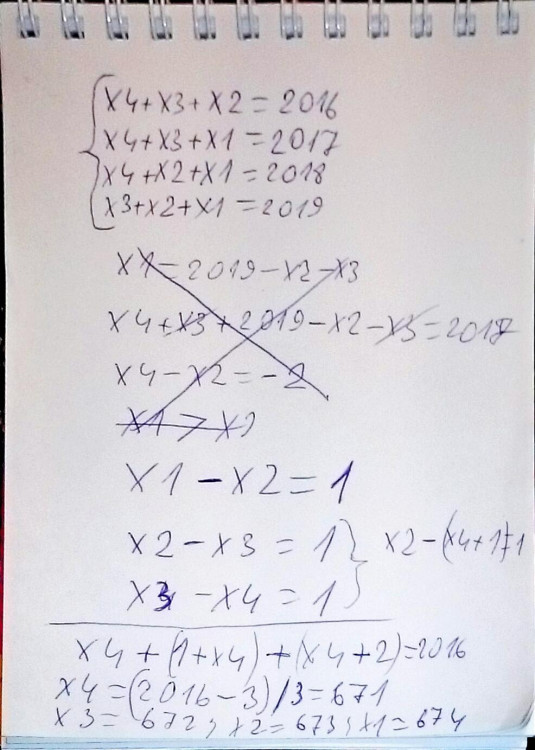 x4+x3+x2=2016
x4+x3+x1=2017
x4+x2+x1=2018
x3+x2+x1=2019
x1=2019-x2-x3
x4+x3+2019-x2-x3=2017
x4-x2=-2
x1>x2
x1-x2=1
x2-x3=1} x2-(x4+1)=1
x3-x4=1
x4+(1+x4)+(x4+2)=2016
x4=(2016-3)/3=671
x3=672, x2=673, x1=674